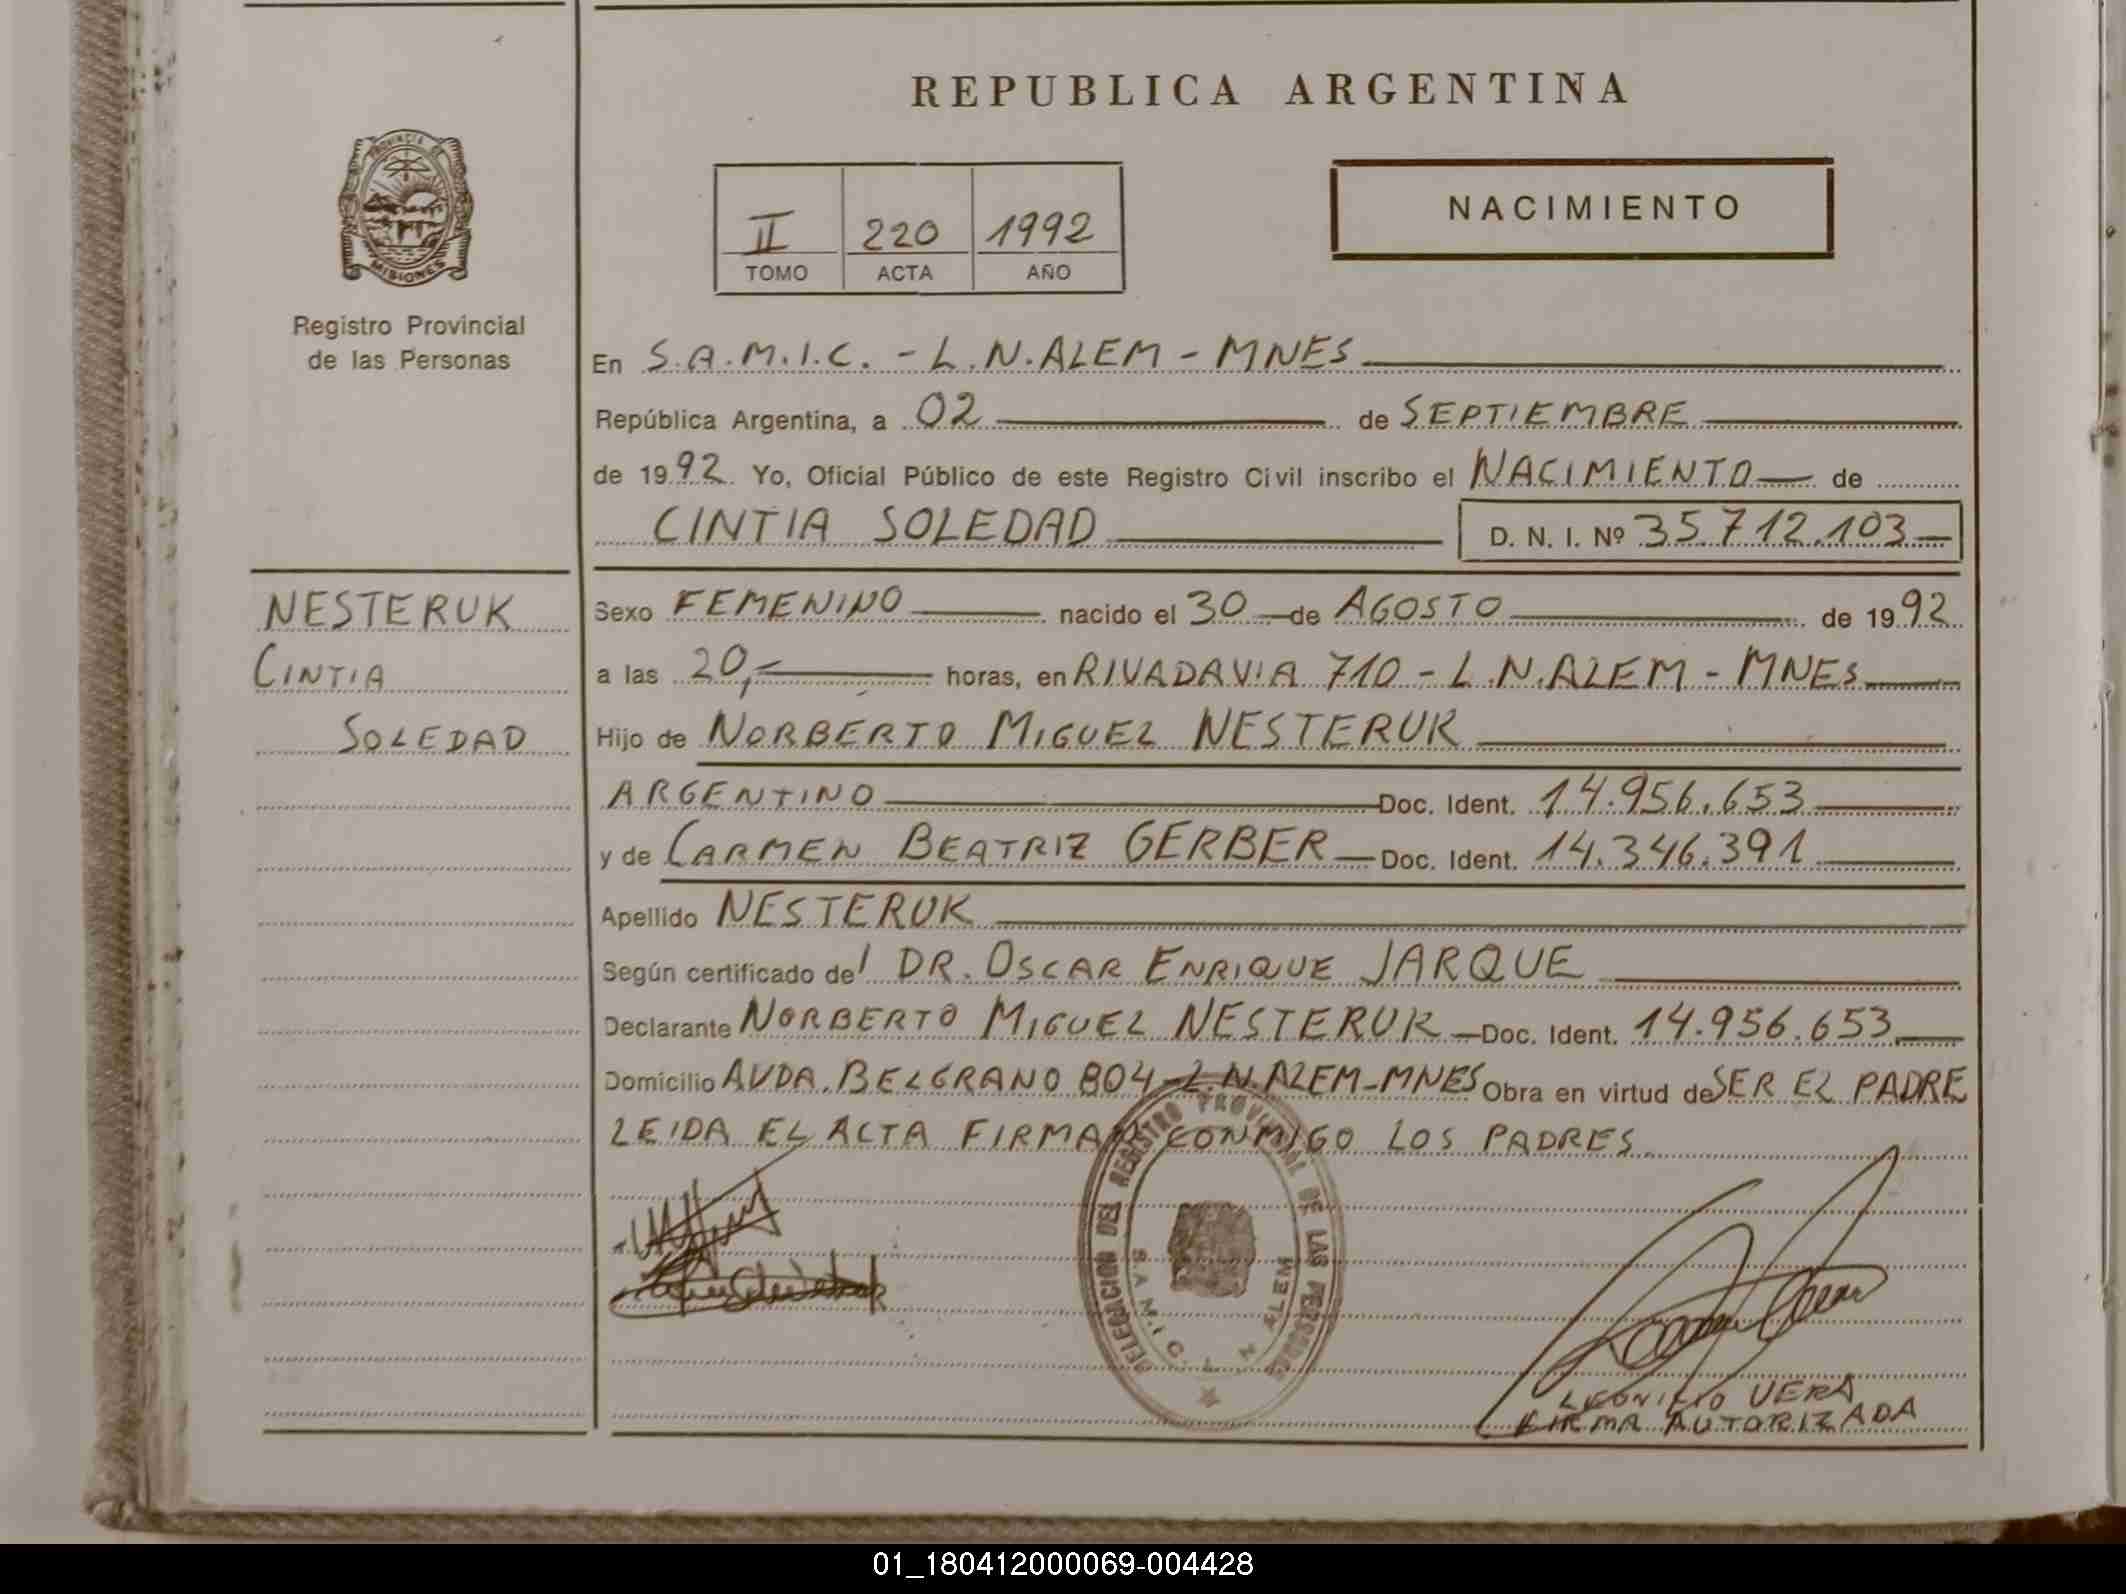 REPUBLICA ARGENTINA
PROVINCIA DE
MISIONES
Registro Provincial
de las Personas
II 220 1992
TOMO ACTA AÑO
NACIMIENTO
En S.A.M.I.C. - L.N.ALEM - MNES
República Argentina, a 02 de SEPTIEMBRE
de 1992 Yo, Oficial Público de este Registro Civil inscribo el NACIMIENTO de
CINTIA SOLEDAD D. N. I. Nº 35.712.103
NESTERUK
CINTIA
SOLEDAD
Sexo FEMENINO nacido el 30 de AGOSTO de 1992
a las 20,- horas, en RIVADAVIA 710 - L.N.ALEM - MNES
Hijo de NORBERTO MIGUEL NESTERUK
ARGENTINO Doc. Ident. 14.956.653
y de CARMEN BEATRIZ GERBER Doc. Ident. 14.346.391
Apellido NESTERUK
Según certificado del DR. OSCAR ENRIQUE JARQUE
Declarante NORBERTO MIGUEL NESTERUK Doc. Ident. 14.956.653
Domicilio AVDA. BELGRANO 804 - L.N.ALEM-MNES Obra en virtud de SER EL PADRE
LEIDA EL ACTA FIRMAN CONMIGO LOS PADRES.
DELEGACION DEL REGISTRO PROVINCIAL DE LAS PERSONAS
S.A.M.I.C. L. N. ALEM
VERA
FIRMA AUTORIZADA
01_180412000069-004428